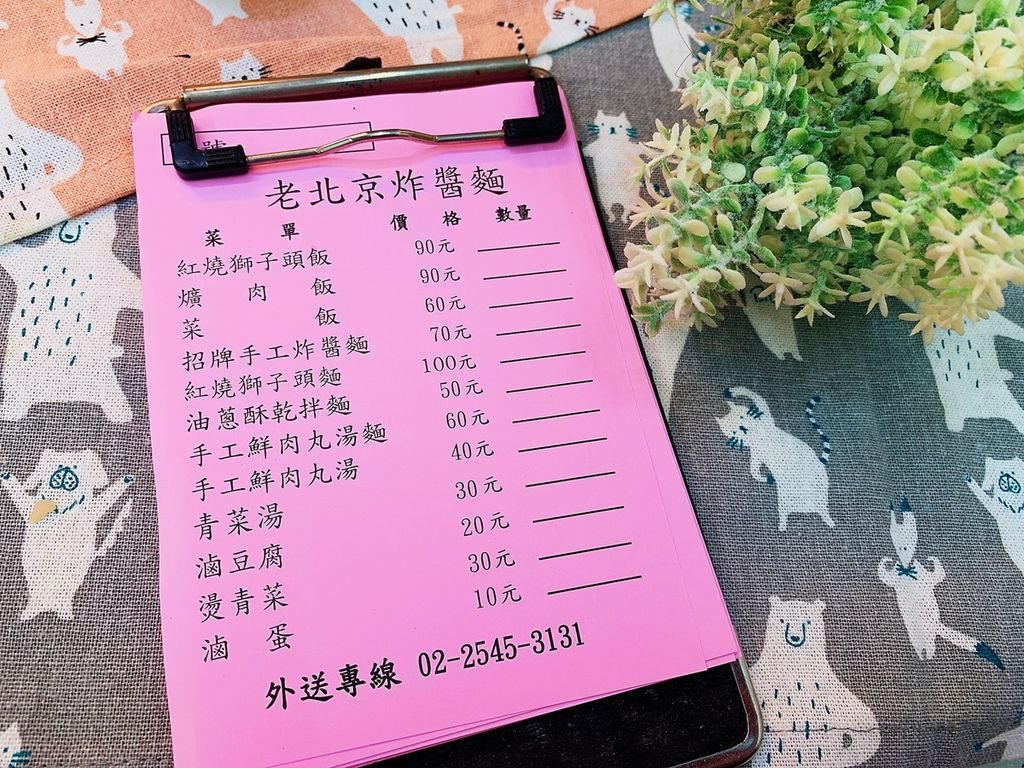 號
老北京炸醬麵
菜 單 價 格 數量
紅燒獅子頭飯 90元
爌 肉 飯 90元
菜 飯 60元
招牌手工炸醬麵 70元
紅燒獅子頭麵 100元
油蔥酥乾拌麵 50元
手工鮮肉丸湯麵 60元
手工鮮肉丸湯 40元
青菜湯 30元
滷豆腐 20元
燙青菜 30元
滷 蛋 10元
外送專線 02-2545-3131